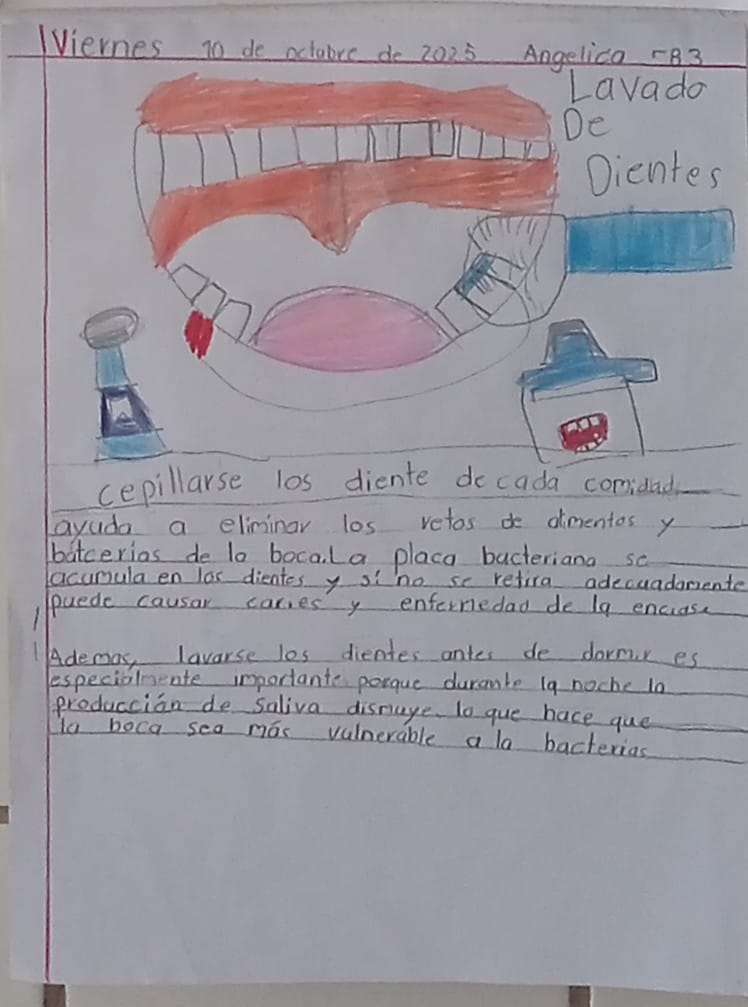 Viernes 10 de octubre de 2025 Angelica
Lavado
De
Dientes
cepillarse los diente de cada comidad
ayuda a eliminar los retos de alimentos y
batcerias de la boca.La placa bacteriana se
acumula en los dientes y si no se retira adecuadamente
puede causar caries y enfermedad de la encias
Ademas, lavarse los dientes antes de dormir es
especialmente importante porque durante la noche la
producción de saliva dismuye lo que hace que
la boca sea más vulnerable a la bacterias